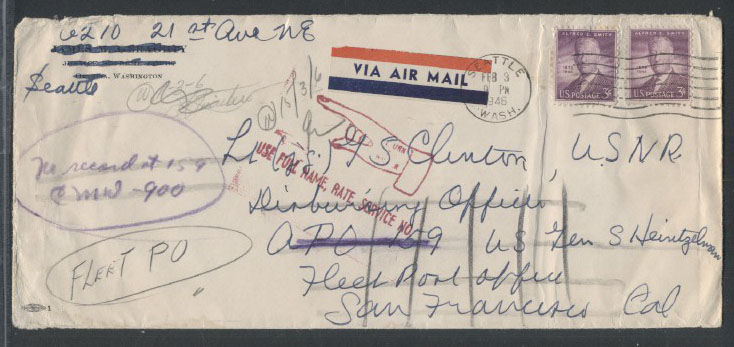 6210 21st Ave NE
Seattle
WASHINGTON
2-6
VIA AIR MAIL
SEATTLE
FEB 3
PM
1946
WASH.
ALFRED E. SMITH
U.S. POSTAGE 3¢
ALFRED E. SMITH
U.S. POSTAGE 3¢
USE FULL NAME, RATE, SERVICE NO.
No record at 159
900
FLEET PO
Lt (jg) G S Clinton, USNR
Disbursing Officer
APO 159 US Gen S Heintzelman
Fleet Post Office
San Francisco Cal
1